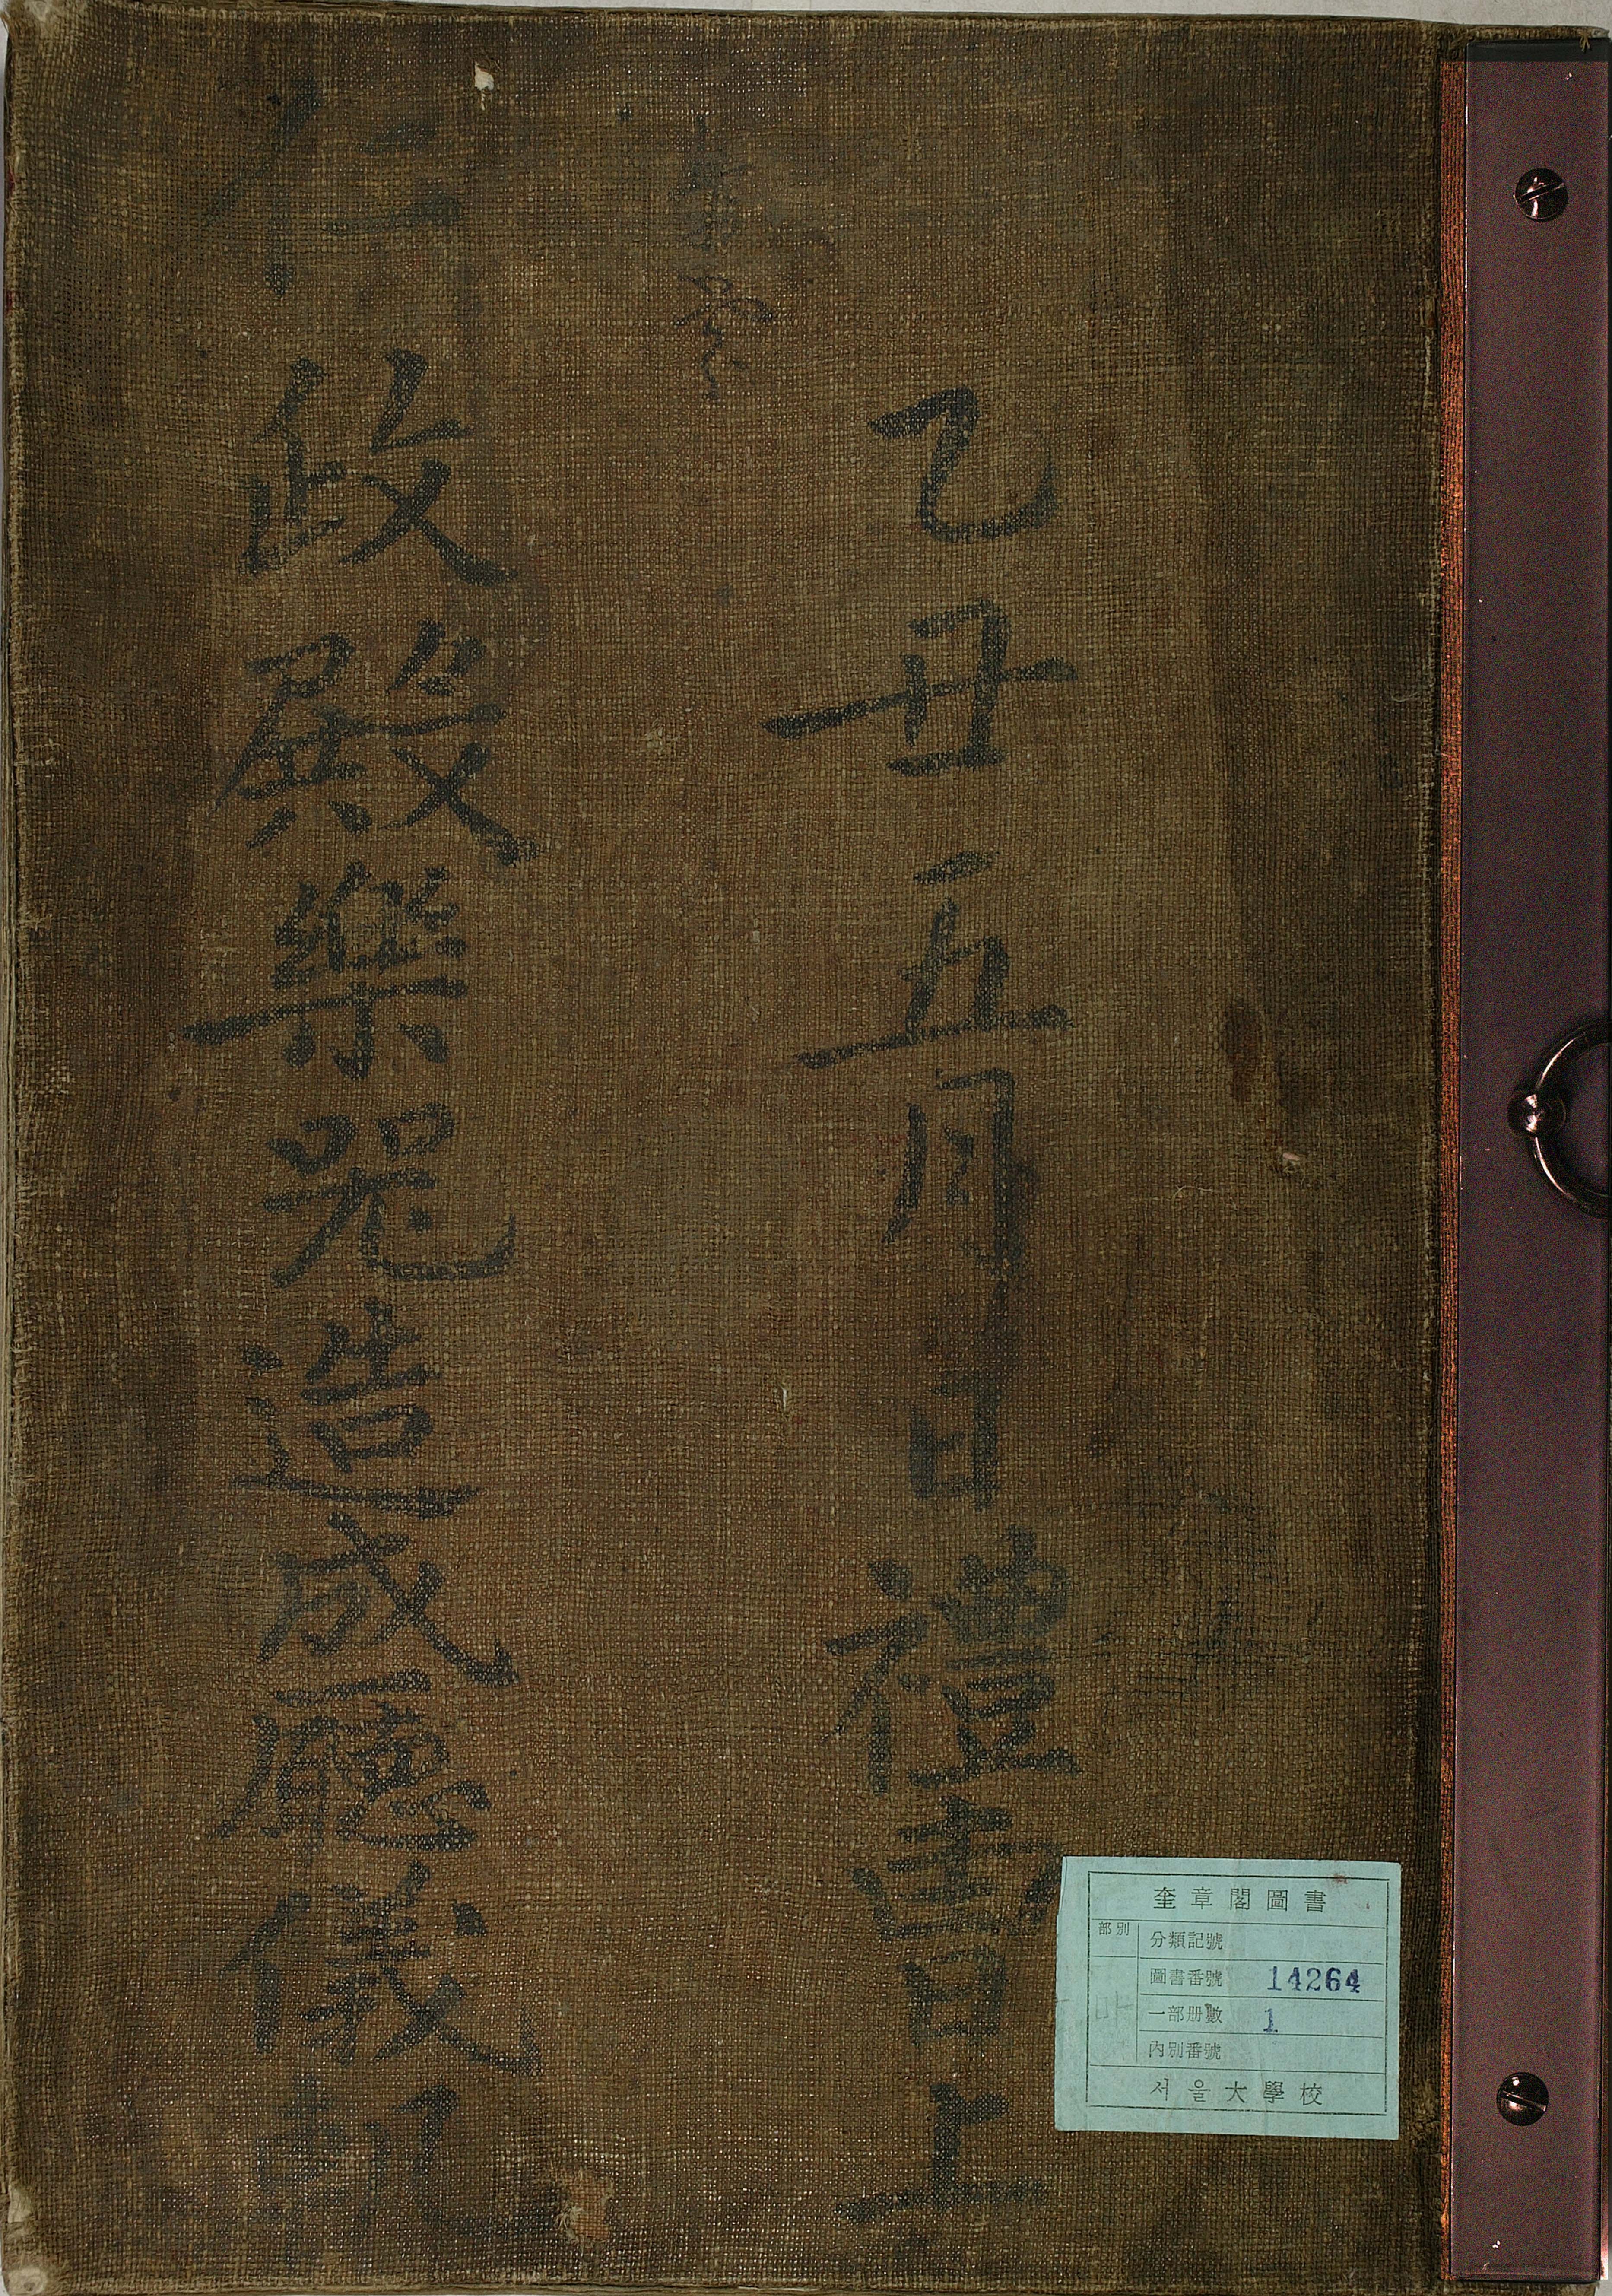 乙丑五月日禮曹上
仁政殿樂器造成廳儀軌
奎章閣圖書
部別
分類記號
圖書番號 14264
一部册數 1
內別番號
서울大學校